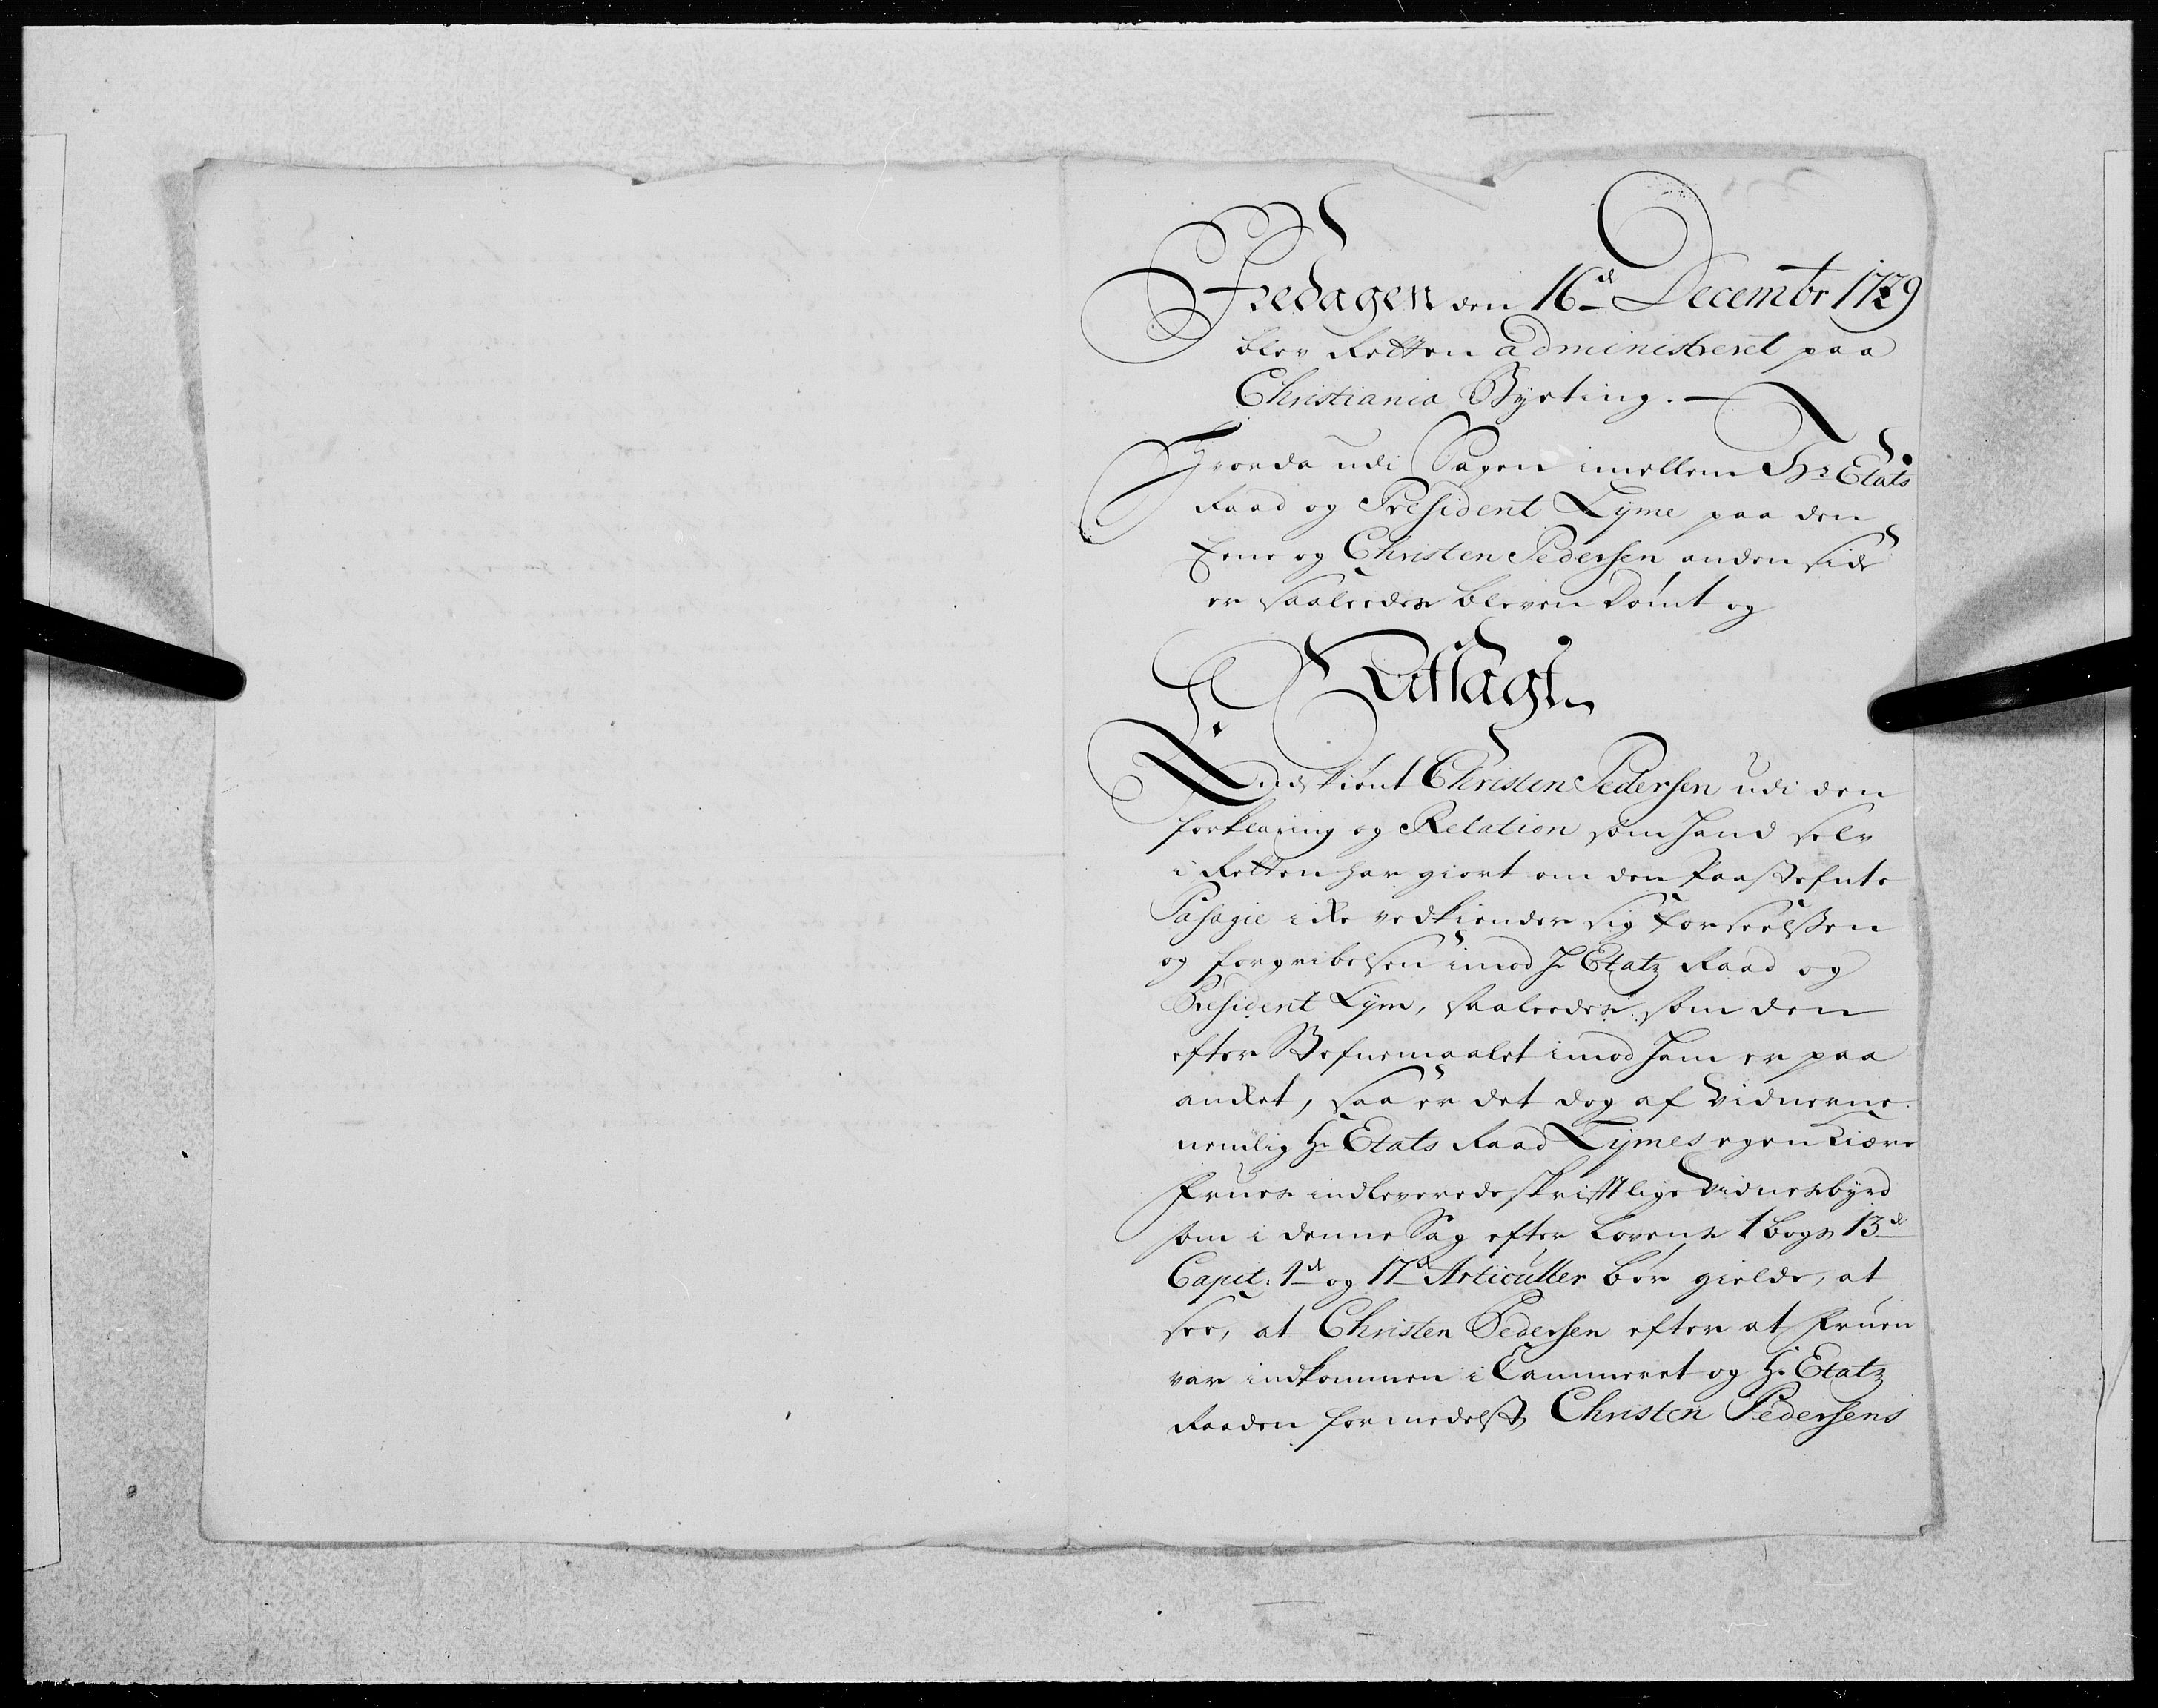 Fredagen den 16d Decembr 1729
blev Retten administreret paa
Christiania Byeting.
Hvorda udi Sagen imellem Hr Etats
Raad og President Lyme paa den
Eene og Christen Pedersen anden side
er saaleedes bleven Dømt og
Afsagt
Endskiønt Christen Pedersen udi den
forklaring og Relation som hand selv
i Retten har giort om den Paastefnte
Pasagie iche vedkiender sig Forseelssen
og forgribelsen imod Hr Etatz Raad og
President Lym, saaleedes som den
efter Stefnemaalet imod ham er paa
anchet, saa er det dog af Vidnerne
nemlig Hr Etats Raad Lymes egen Kiære
Frues indleverede skrifftlige Vidnesbyrd
som i denne Sag efter Lovens 1 bogs 13d
Capit: 1d og 17d Articuller bør gielde, at
see, at Christen Pedersen efter at Fruen
var indkommen i Cammeret og Hr Etatz
Raaden formedelst Christen Pedersens